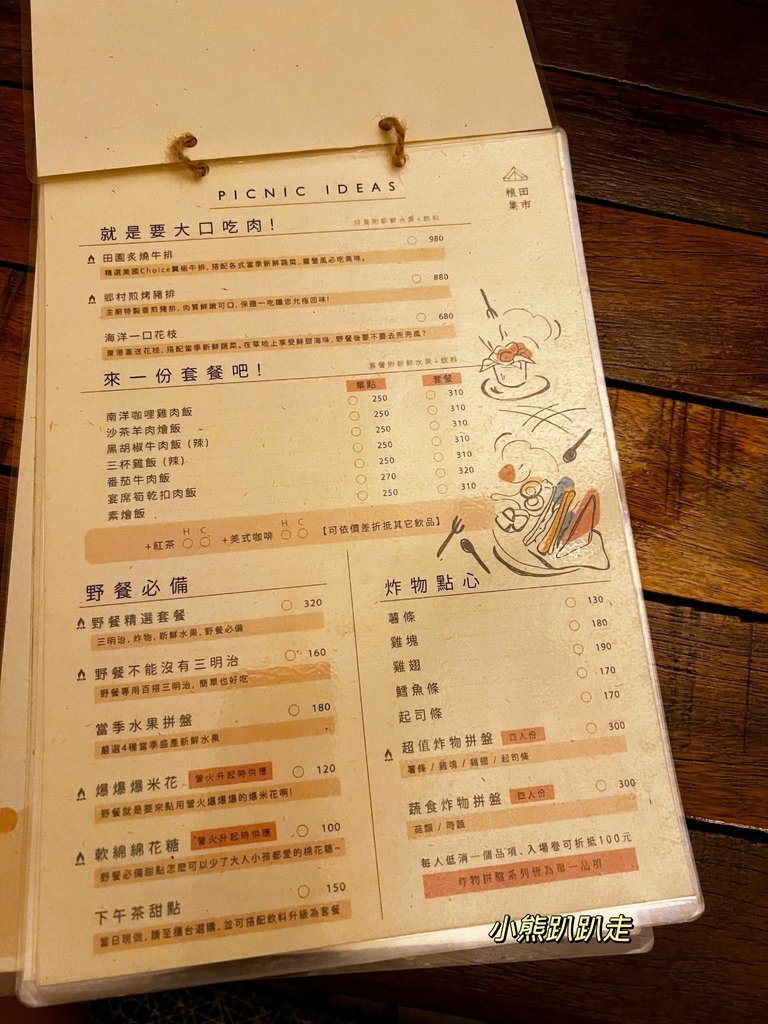 PICNIC IDEAS
粮田
集市
就是要大口吃肉!
田園炙燒牛排 980
精選美國Choice翼板牛排,搭配各式當季新鮮蔬菜,露營風必吃美味。
鄉村煎烤豬排 880
主廚特製香煎豬排,肉質鮮嫩可口,保證一吃讓您允指回味!
海洋一口花枝 680
東港直送花枝,搭配當季新鮮蔬菜。在草地上享受鮮甜海味,野餐後要不要去兜兜風?
來一份套餐吧!
套餐附新鮮水果+飲料
單點 套餐
南洋咖哩雞肉飯 250 310
沙茶羊肉燴飯 250 310
黑胡椒牛肉飯 (辣) 250 310
三杯雞飯 (辣) 250 310
番茄牛肉飯 250 310
宴席筍乾扣肉飯 270 320
素燴飯 250 310
H C H C
+紅茶 +美式咖啡 【可依價差折抵其它飲品】
野餐必備
野餐精選套餐 320
三明治,炸物,新鮮水果,野餐必備
野餐不能沒有三明治 160
野餐專用百搭三明治,簡單也好吃
當季水果拼盤 180
嚴選4種當季盛產新鮮水果
爆爆爆米花 營火升起時供應 120
野餐就是要來點用營火爆爆爆的爆米花啊!
軟綿綿花糖 營火升起時供應 100
野餐必備甜點怎麼可以少了大人小孩都愛的棉花糖~
下午茶甜點 150
當日現做,請至櫃台選購,並可搭配飲料升級為套餐
炸物點心
薯條 130
雞塊 180
雞翅 190
鱈魚條 170
起司條 170
超值炸物拼盤 四人份 300
薯條 / 雞塊 / 雞翅 / 起司條
蔬食炸物拼盤 四人份 300
菇類 / 時蔬
每人低消一個品項、入場卷可折抵100元
炸物拼盤系列皆為單一品項
小熊趴趴走